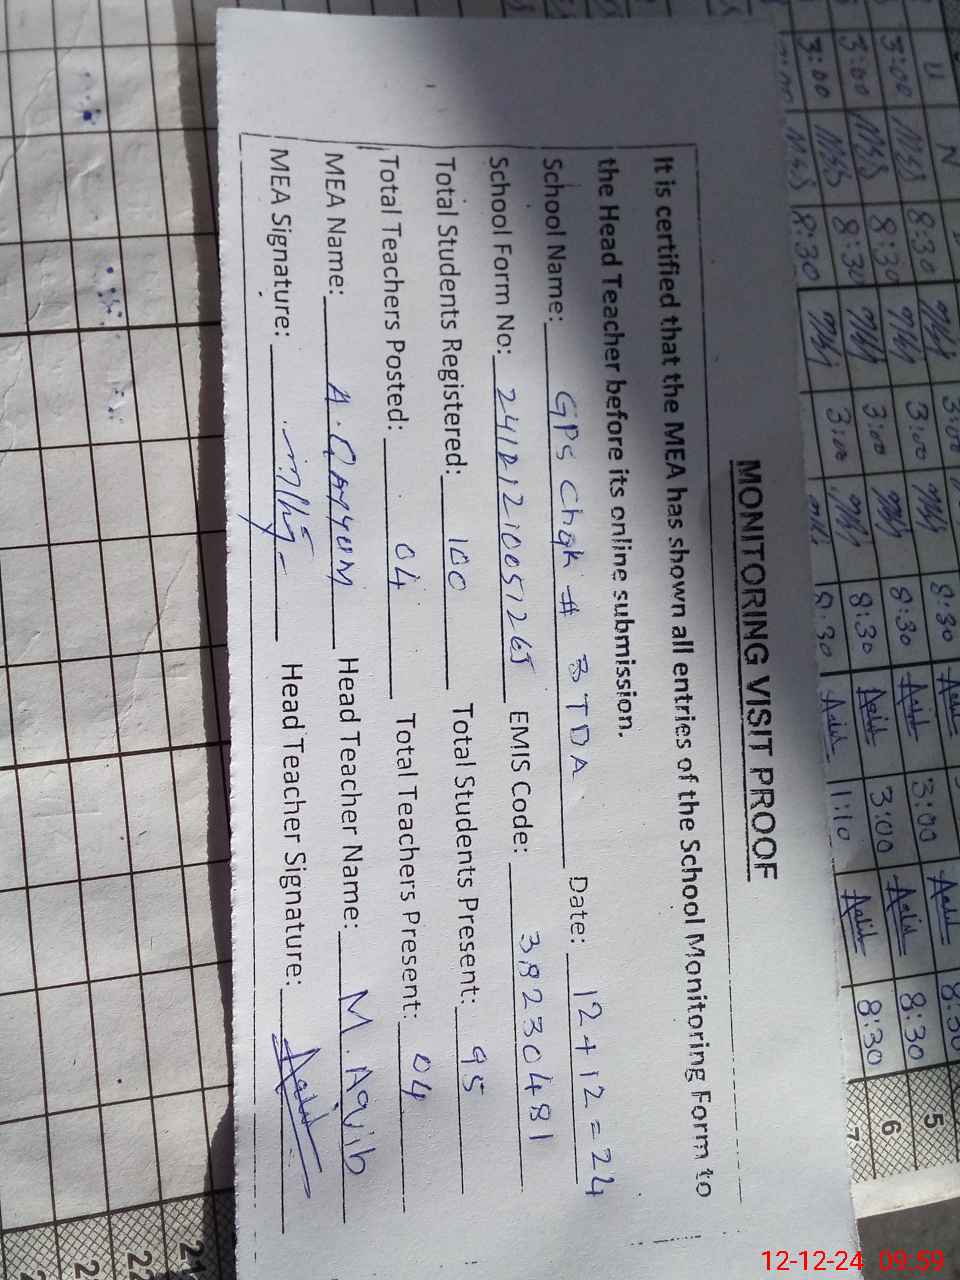 MONITORING VISIT PROOF
It is certified that the MEA has shown all entries of the School Monitoring Form to
the Head Teacher before its online submission.
School Name: GPS Chak # 3 TDA Date: 12+12=24
School Form No: 24121210051265 EMIS Code: 38230481
Total Students Registered: 100 Total Students Present: 95
Total Teachers Posted: 04 Total Teachers Present: 04
MEA Name: A. QAYYUM Head Teacher Name: M. Aqib
MEA Signature: Head Teacher Signature: Aqib
U N 8:30 3:00 8:30 3:00 8:30 5
3:00 8:30 3:00 8:30 3:00 8:30 6
3:00 8:30 3:00 8:30 1:10 8:30 7
21
22
2
2
12-12-24 09:59